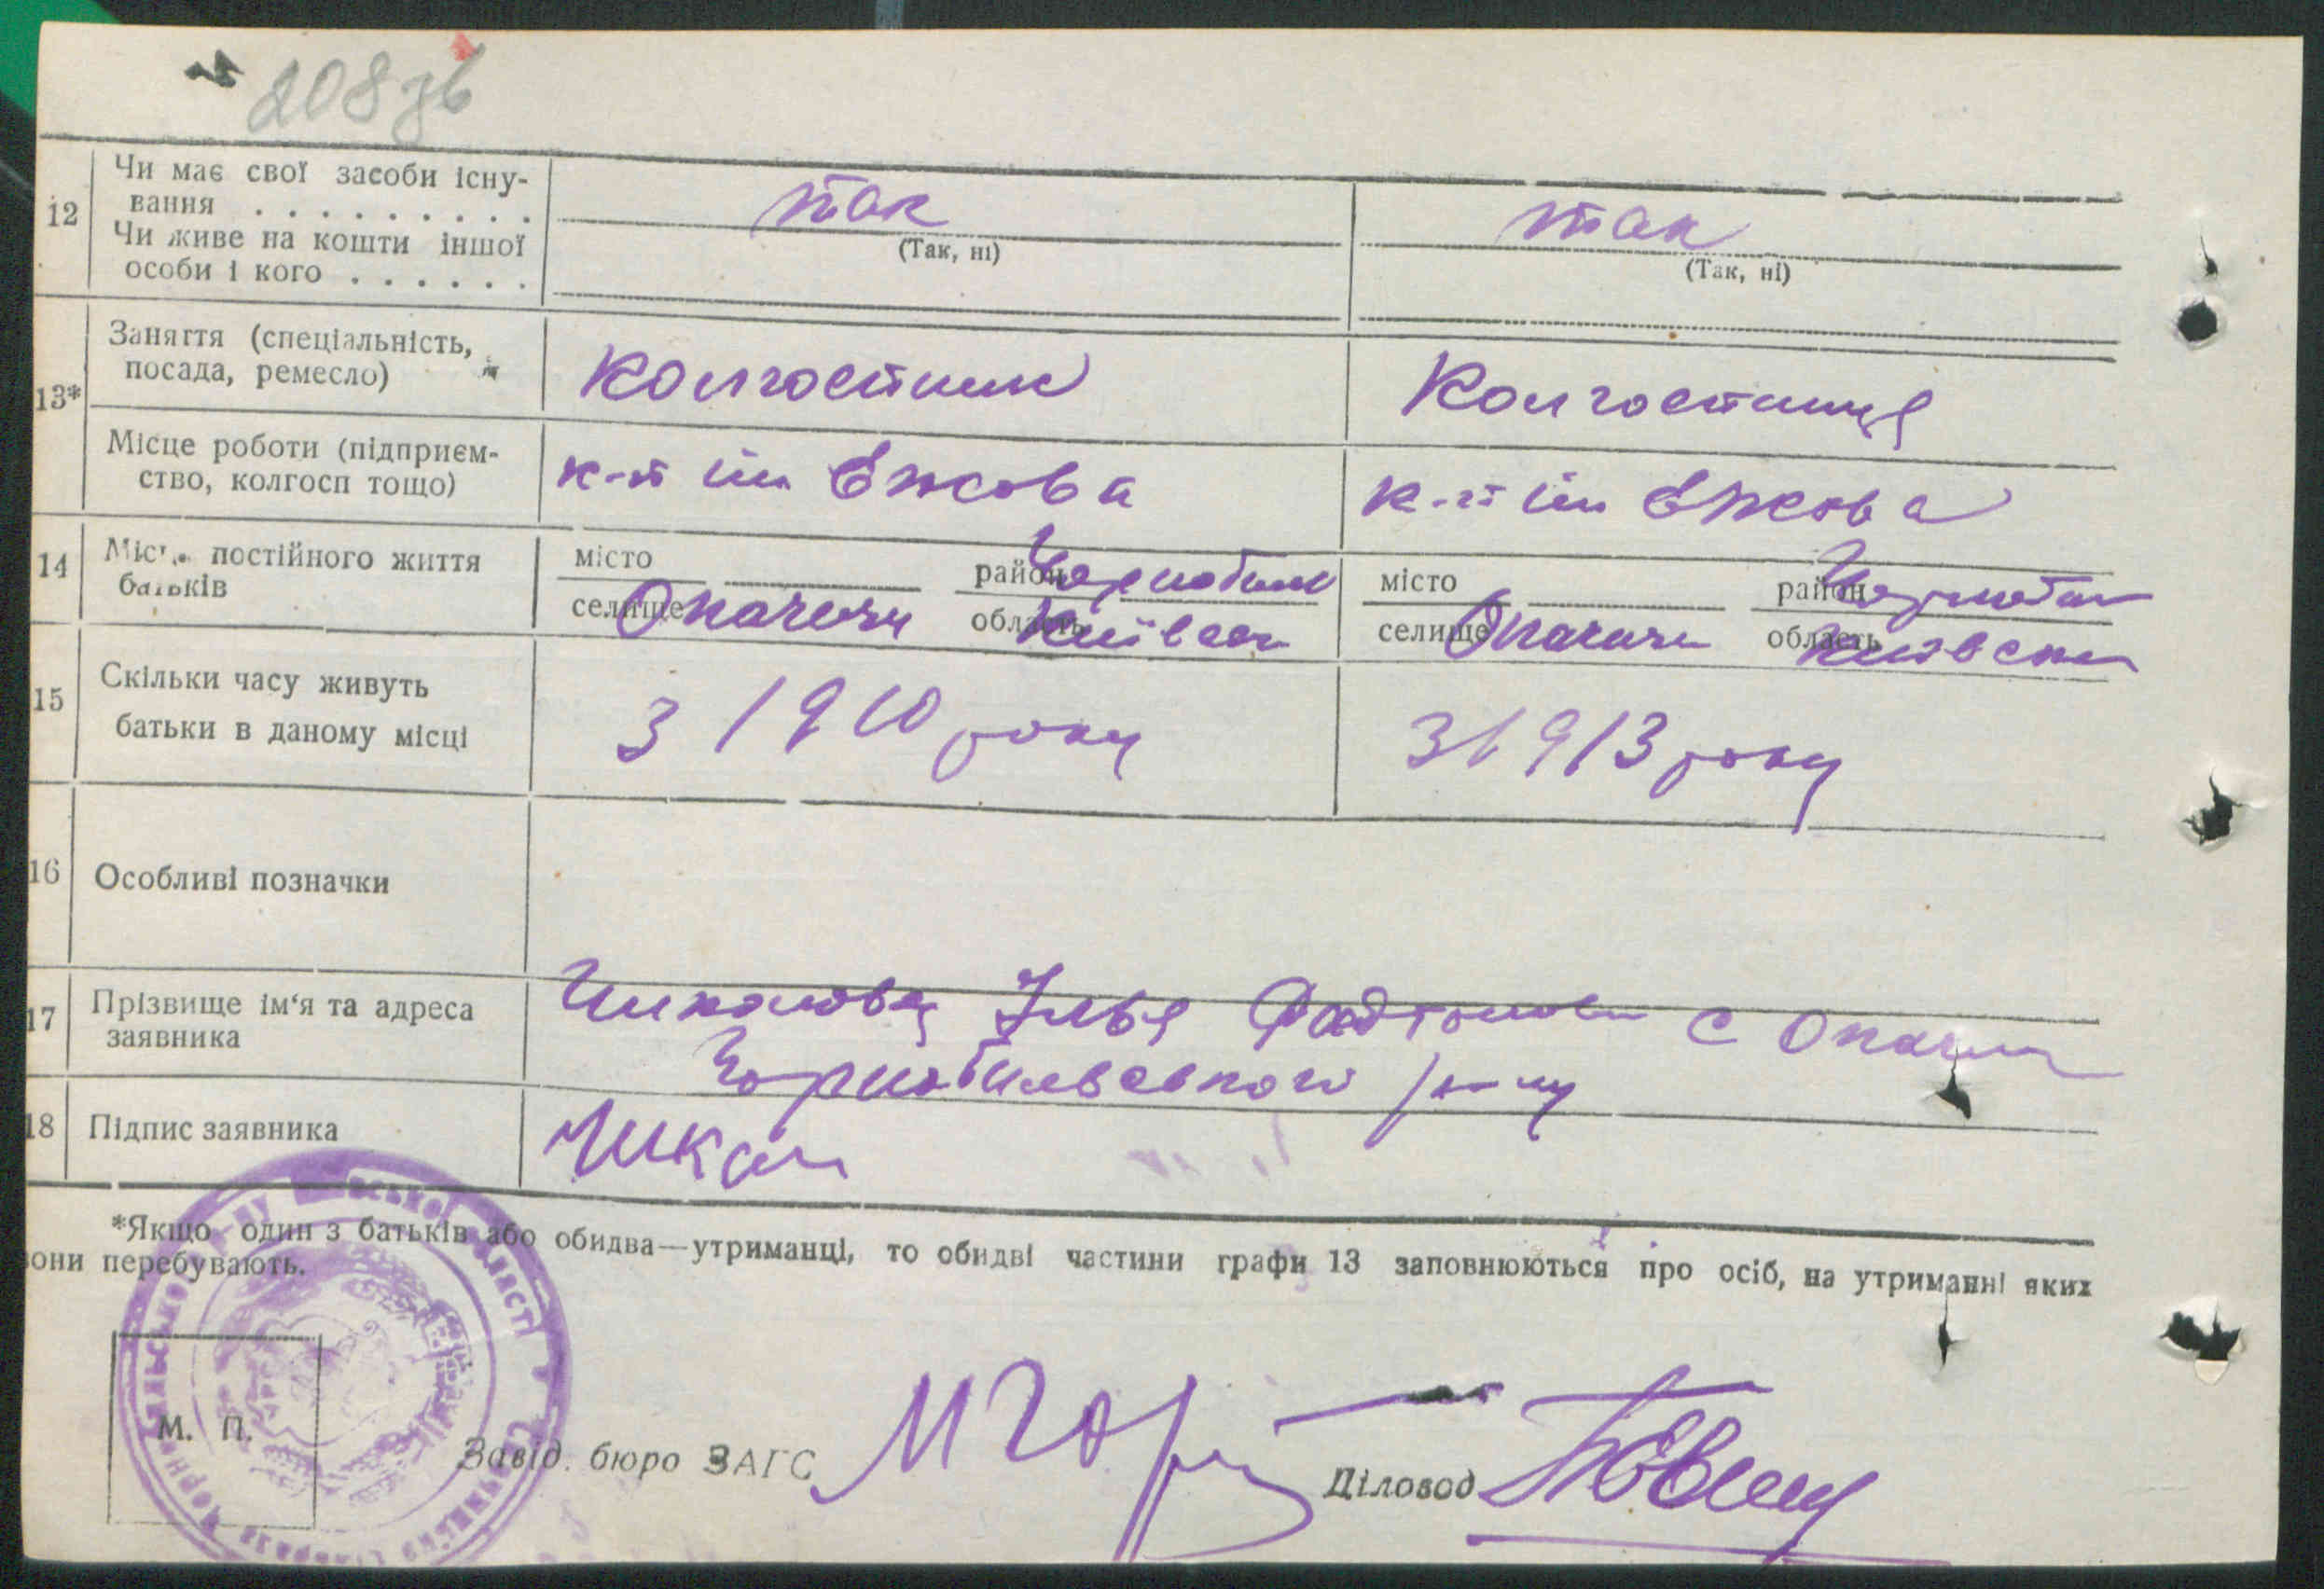 208 зв
12 Чи має свої засоби існу-
вання . . . . . . . . . так так
Чи живе на кошти іншої (Так, ні) (Так, ні)
особи і кого . . . . . .
13* Заняття (спеціальність,
посада, ремесло) Колгоспник Колгоспниця
Місце роботи (підприєм-
ство, колгосп тощо) к-п ім Єжова к-п ім Єжова
14 Місц. постійного життя місто район Чорнобил місто район Чорнобил
батьків селище Опачичи область Київськ селище Опачичи область Київська
15 Скільки часу живуть
батьки в даному місці З 1910 року З 1913 року
16 Особливі позначки
17 Прізвище ім‘я та адреса Ілья с Опачичи
заявника Чорнобильського р-ну
18 Підпис заявника Чикал
*Якщо один з батьків або обидва—утриманці, то обидві частини графи 13 заповнюються про осіб, на утриманні яких
вони перебувають.
М. П.
Завід. бюро ЗАГС Діловод